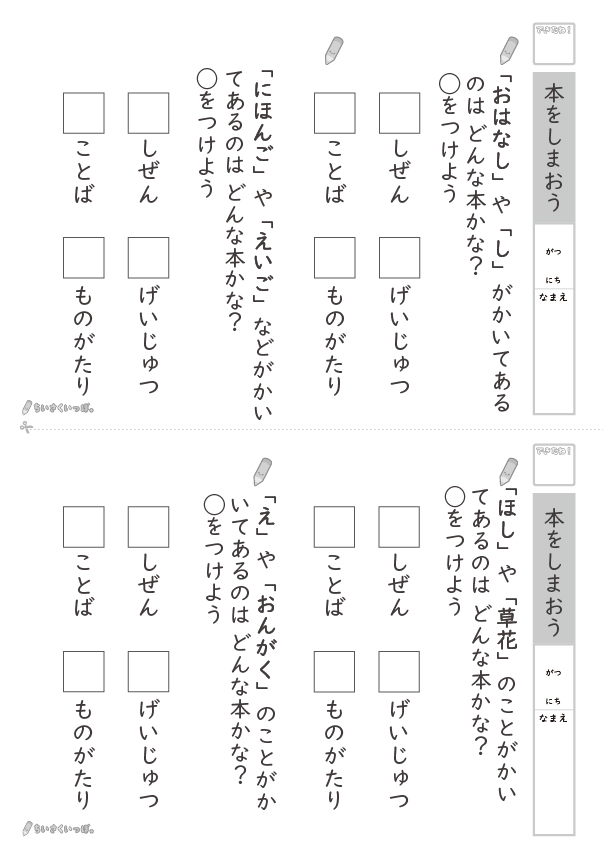 できたね！
本をしまおう
がつ
にち
なまえ
「おはなし」や「し」がかいてある
のは どんな本かな？
◯をつけよう
しぜん
げいじゅつ
ことば
ものがたり
「にほんご」や「えいご」などがかい
てあるのは どんな本かな？
◯をつけよう
しぜん
げいじゅつ
ことば
ものがたり
ちいさくいっぽ。
できたね！
本をしまおう
がつ
にち
なまえ
「ほし」や「草花」のことがかい
てあるのは どんな本かな？
◯をつけよう
しぜん
げいじゅつ
ことば
ものがたり
「え」や「おんがく」のことがか
いてあるのは どんな本かな？
◯をつけよう
しぜん
げいじゅつ
ことば
ものがたり
ちいさくいっぽ。